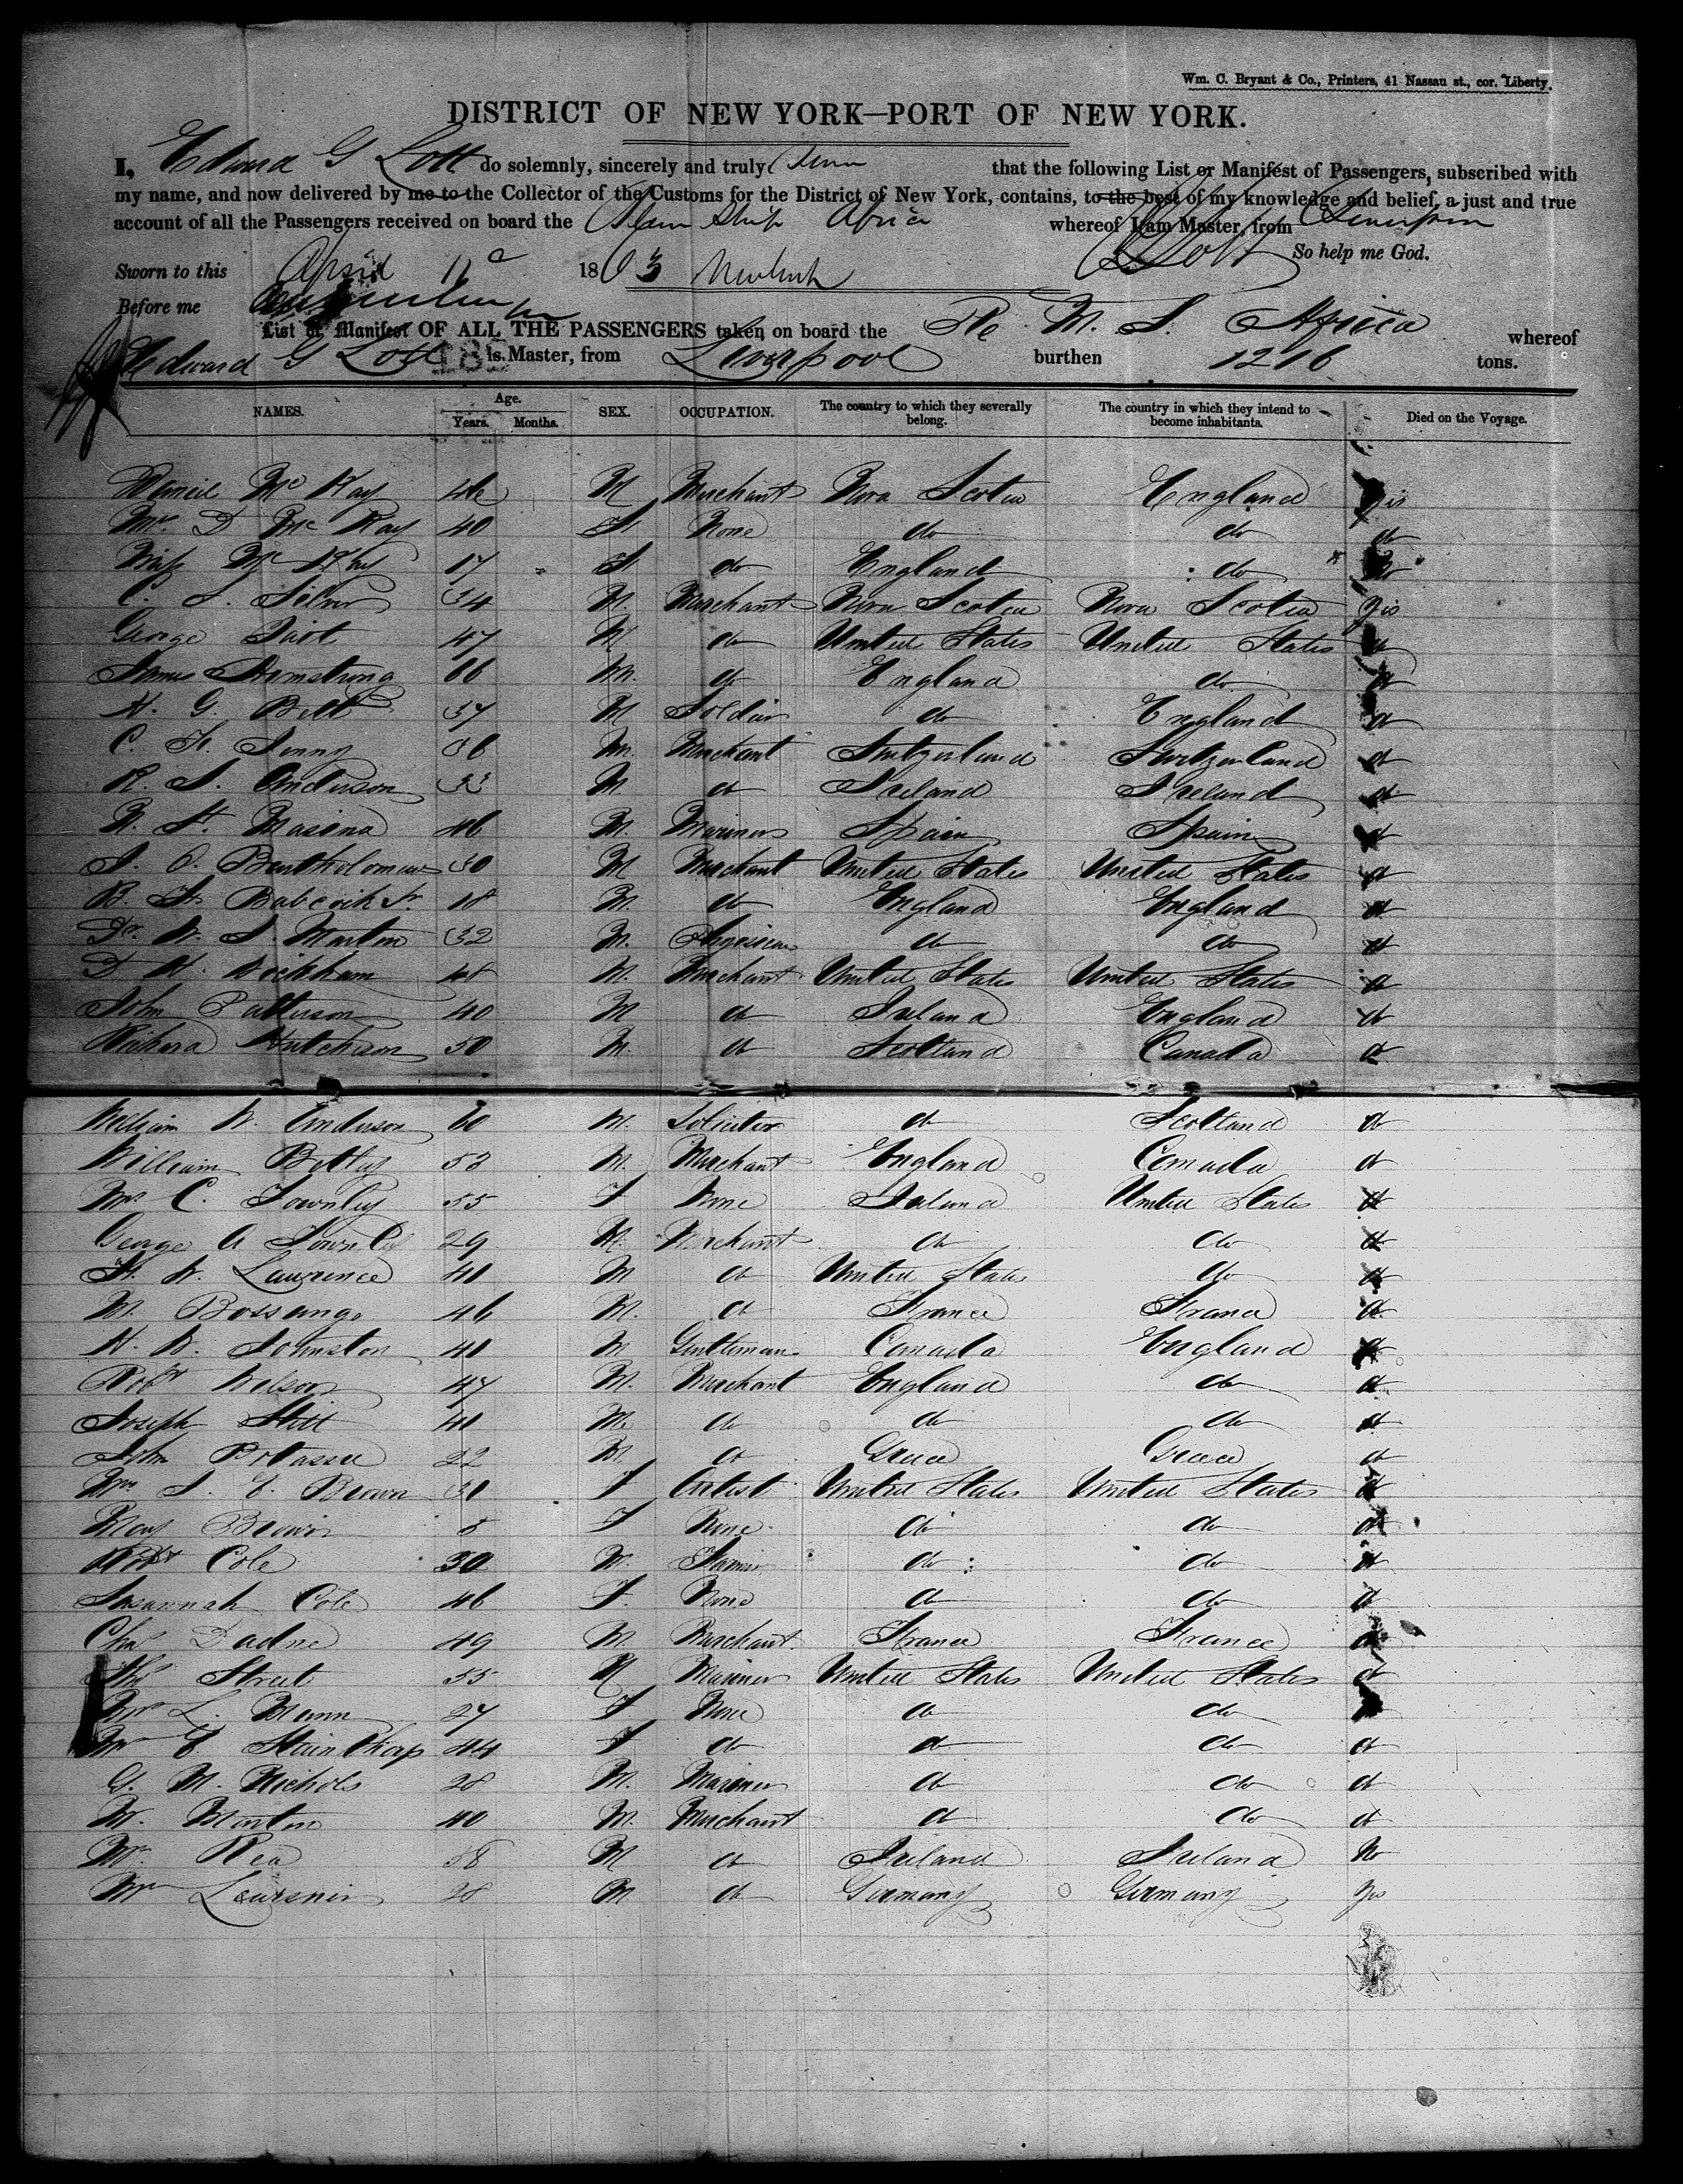 Wm. C. Bryant & Co., Printers, 41 Nassau st., cor. Liberty.
DISTRICT OF NEW YORK—PORT OF NEW YORK.
I, Edward G Lott do solemnly, sincerely and truly that the following List or Manifest of Passengers, subscribed with
my name, and now delivered by me to the Collector of the Customs for the District of New York, contains, to the best of my knowledge and belief, a just and true
account of all the Passengers received on board the Steam Ship Africa whereof I am Master, from Liverpool
So help me God.
Sworn to this April 11 1863 E G Lott
Before me
List or Manifest OF ALL THE PASSENGERS taken on board the R. M. S. Africa whereof
Edward G Lott is Master, from Liverpool burthen 1216 tons.
NAMES. Age. Years. Months. SEX. OCCUPATION. The country to which they severally belong. The country in which they intend to become inhabitants. Died on the Voyage.
Daniel Mc Kay 42 M Merchant Nova Scotia England Yes
Mrs D Mc Kay 40 F None do do do
Miss Mc Kay 17 F do England do No
C. S. Silver 34 M. Merchant Nova Scotia Nova Scotia Yes
George 47 M do United States United States do
James Armstrong 66 M. do England do do
H. G. Bell 37 M Soldier do England do
C. F. Jenny 36 M. Merchant Switzerland Switzerland do
R. S. Anderson 33 M do Ireland Ireland do
46 M. Mariner Spain Spain do
J. O. Bartholomew 30 M Merchant United States United States do
B. F. Babcock Jr. 18 M. do England England do
Dr. W. J. Morton 32 M. Physician do do do
D H. Wickham 48 M. Merchant United States United States do
John Patterson 40 M do Ireland England do
Richard Hutchison 50 M. do Scotland Canada do
William W. Anderson 60 M. Solicitor do Scotland do
William 53 M. Merchant England Canada do
Mrs C. Townley 55 F None Ireland United States do
George A Townley 29 M. Merchant do do do
F. W. Lawrence 40 M do United States do do
M. Bossange 46 M. do France France do
H. W. Johnston 40 M Gentleman Canada England do
Robt Wilson 47 M. Merchant England do do
Joseph Stitt 40 M. do do do do
John 22 M. do Greece Greece do
Mrs J. E. Brown 31 F Artist United States United States do
May Brown 5 F None do do do
Robt Cole 30 M. Farmer do do do
Susannah Cole 46 F. None do do do
Chas Dadne 49 M. Merchant France France do
Street 55 M Mariner United States United States do
Mrs L. Mann 27 F None do do do
Mrs E. Stainthorp 44 F do do do do
G. M. Nichols 28 M. Mariner do do do
W. Morton 40 M. Merchant do do do
Mr. Rea 58 M do Ireland Ireland No
Mr 28 M do Germany Germany Yes